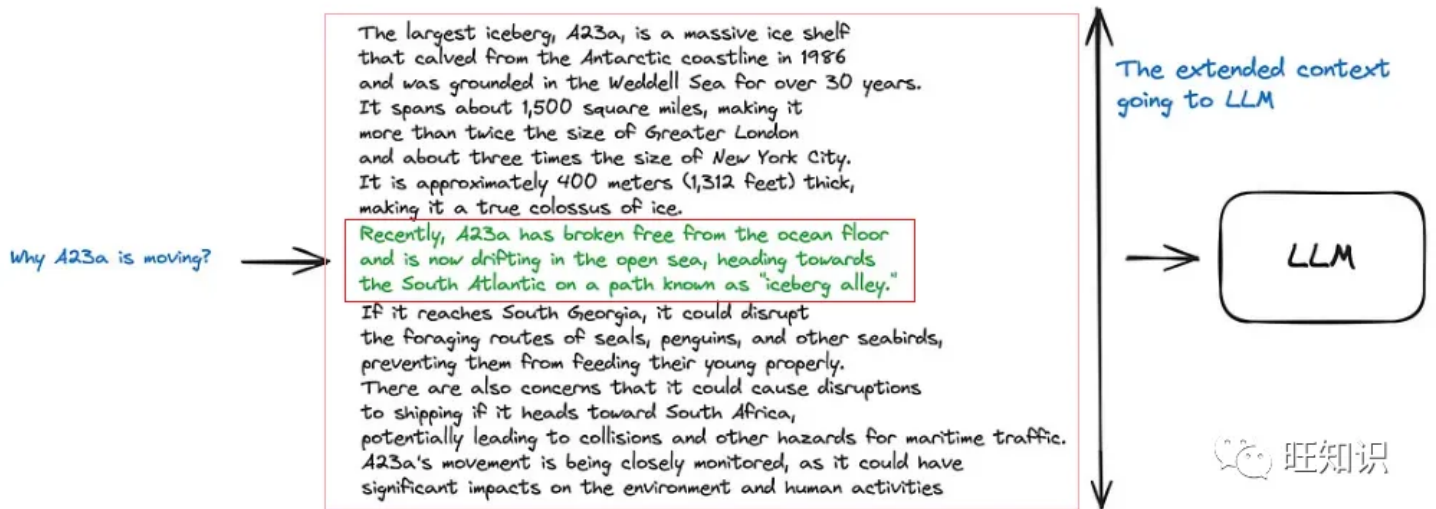 The largest iceberg, A23a, is a massive ice shelf
that calved from the Antarctic coastline in 1986
and was grounded in the Weddell Sea for over 30 years.
It spans about 1,500 square miles, making it
more than twice the size of Greater London
and about three times the size of New York City.
It is approximately 400 meters (1,312 feet) thick,
making it a true colossus of ice.
Recently, A23a has broken free from the ocean floor
and is now drifting in the open sea, heading towards
the South Atlantic on a path known as "iceberg alley."
If it reaches South Georgia, it could disrupt
the foraging routes of seals, penguins, and other seabirds,
preventing them from feeding their young properly.
There are also concerns that it could cause disruptions
to shipping if it heads toward South Africa,
potentially leading to collisions and other hazards for maritime traffic.
A23a's movement is being closely monitored, as it could have
significant impacts on the environment and human activities
Why A23a is moving?
The extended context
going to LLM
LLM
旺知识